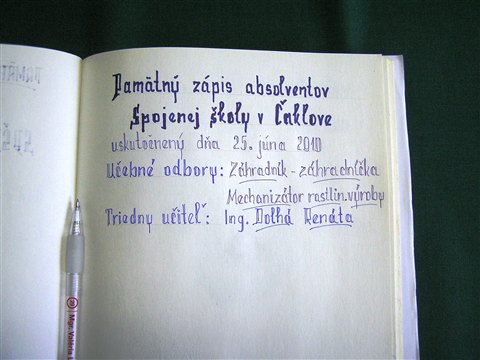 Pamätný zápis absolventov
Spojenej školy v Čaklove
uskutočnený dňa 25. júna 2010
Učebné odbory: Záhradník - záhradníčka
Mechanizátor rastlin. výroby
Triedny učiteľ: Ing. Dolhá Renáta
Mgr. Valéria